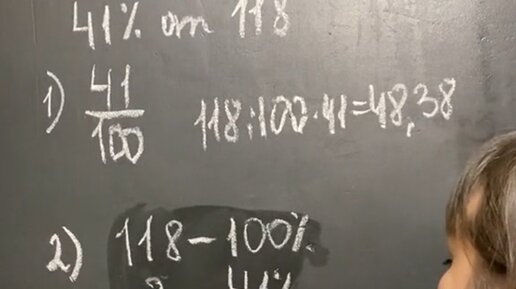 41% от 118
1) 41/100 118:100·41=48,38
2) 118 – 100%
41%